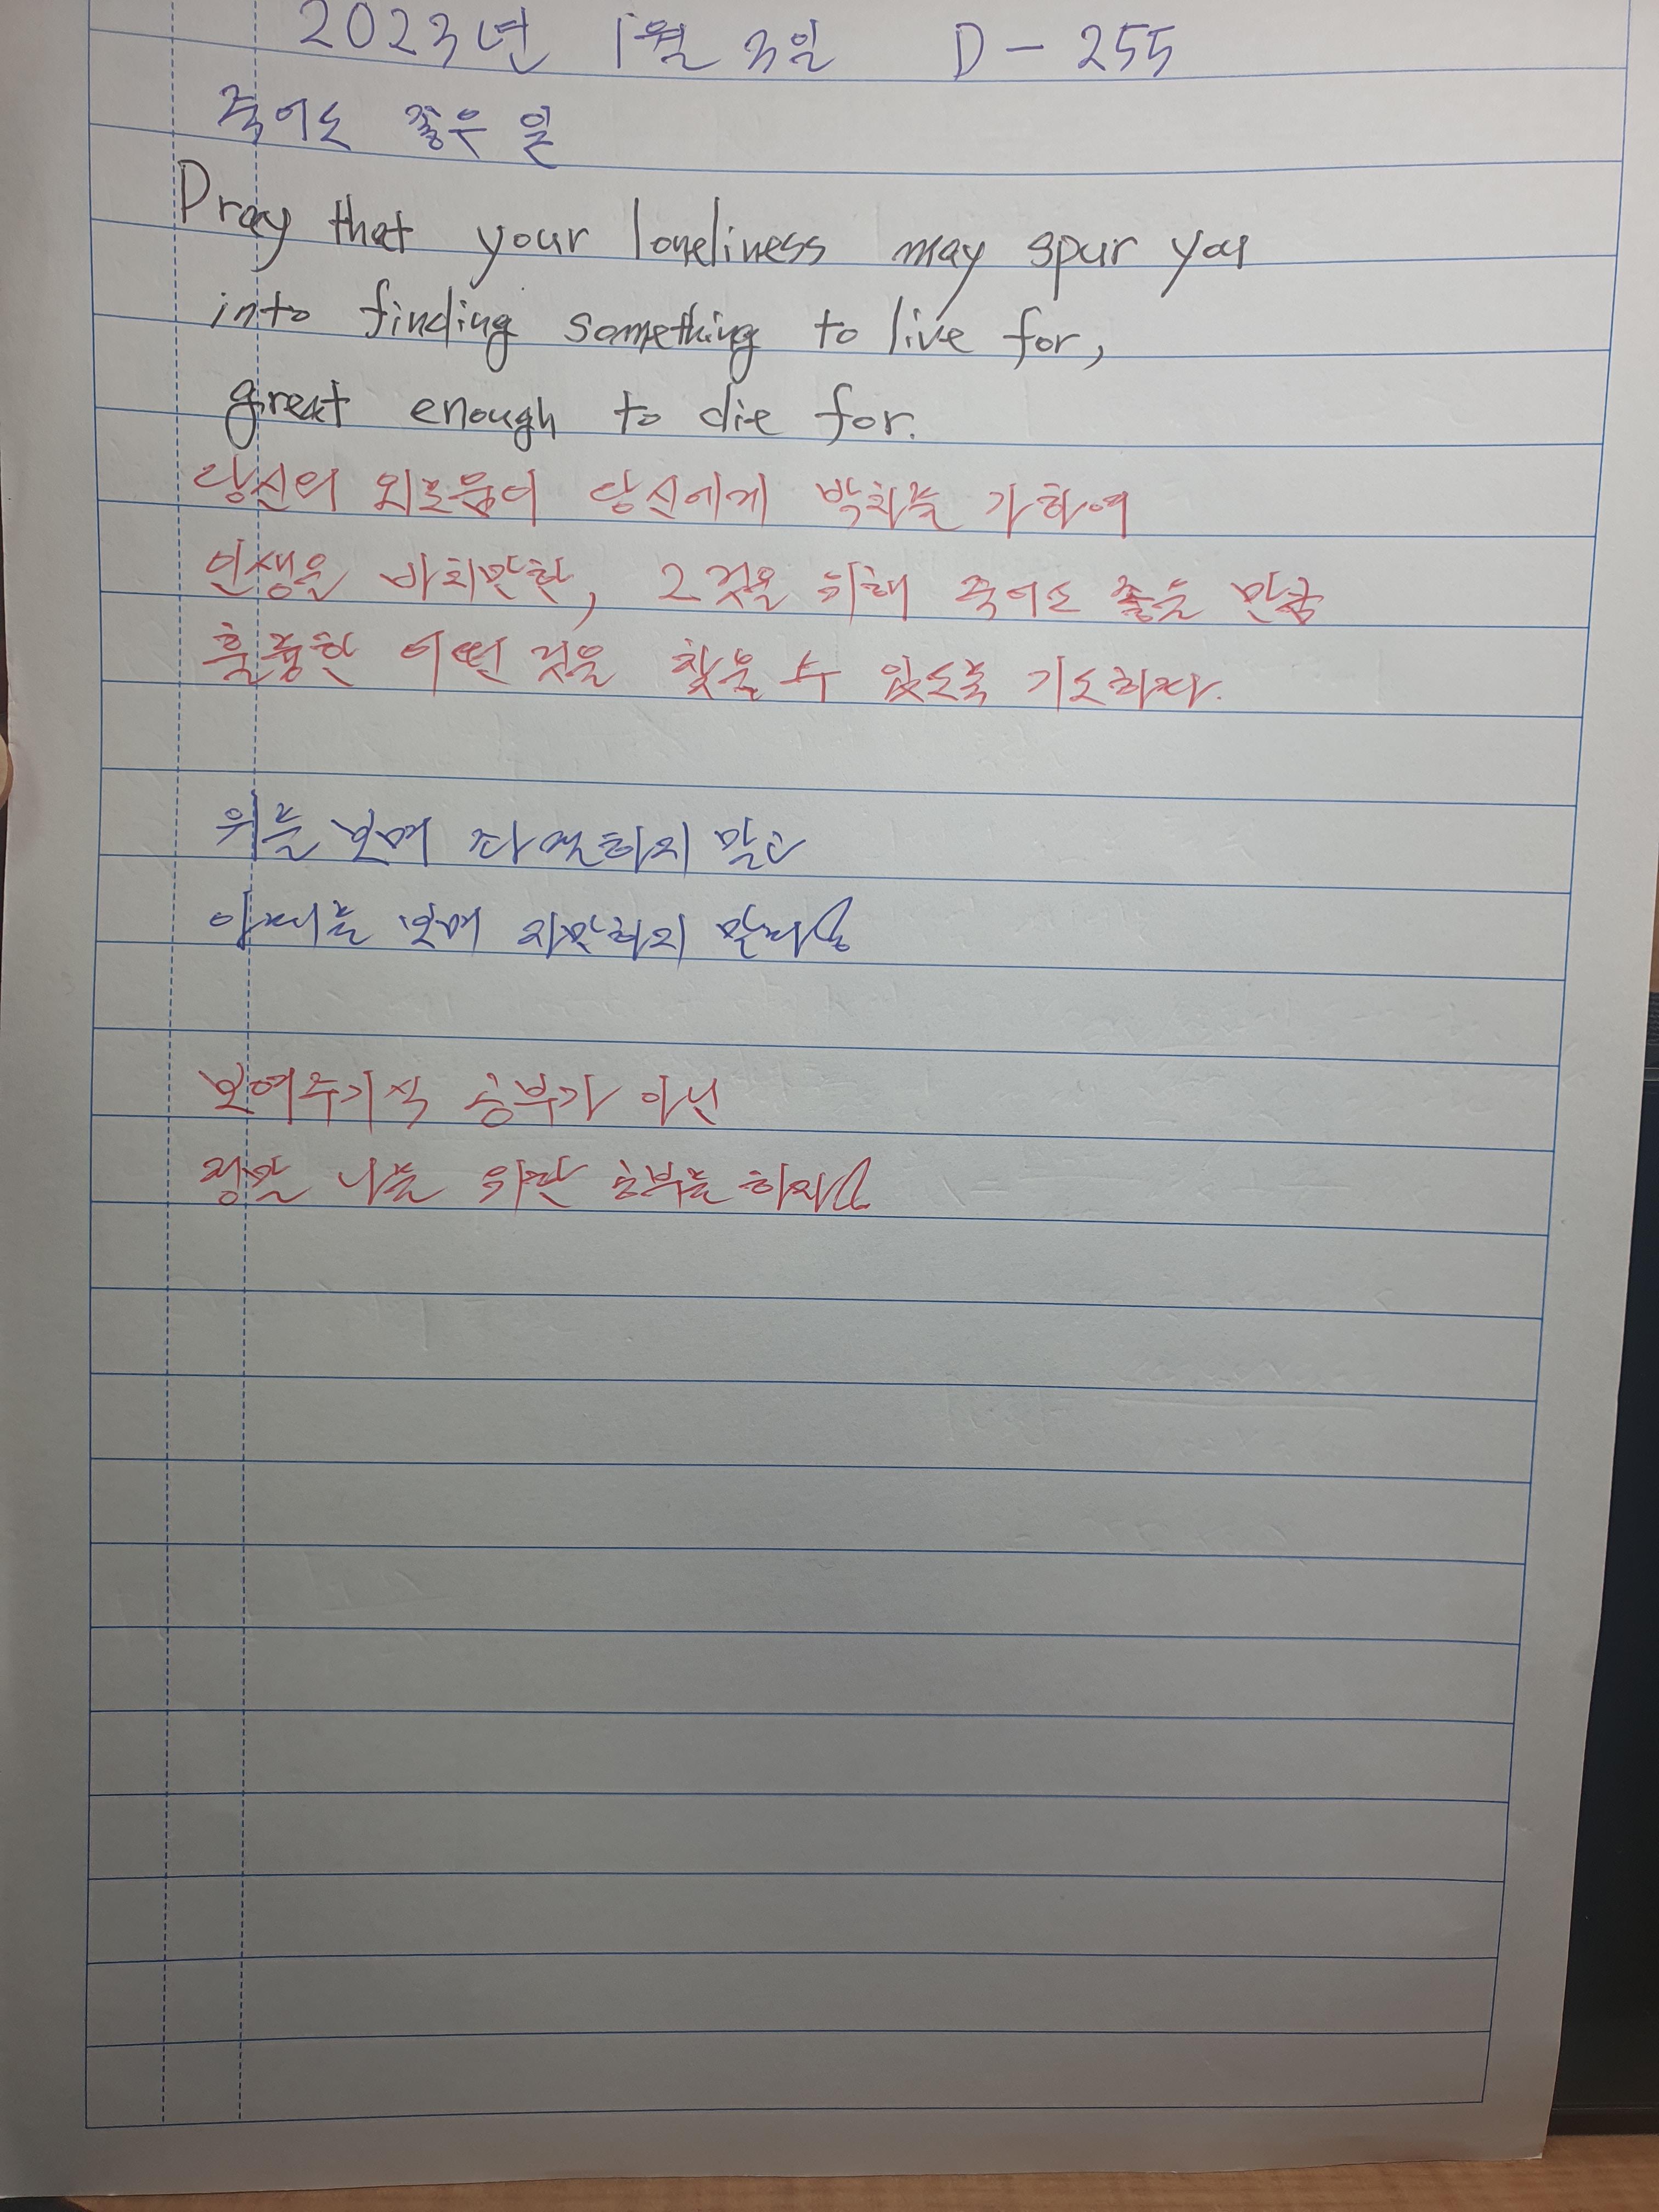 2023년 1월 3일 D-255
죽어도 좋은 일
Pray that your loneliness may spur you
into finding something to live for,
great enough to die for.
당신의 외로움이 당신에게 박차를 가하여
인생을 바치만한, 그것을 위해 죽어도 좋은 만큼
훌륭한 어떤 것을 찾을 수 있도록 기도하자.
위를 보며 좌절하지 말고
아래를 보며 자만하지 말자
보여주기식 공부가 아닌
정말 나를 위한 공부를 하자